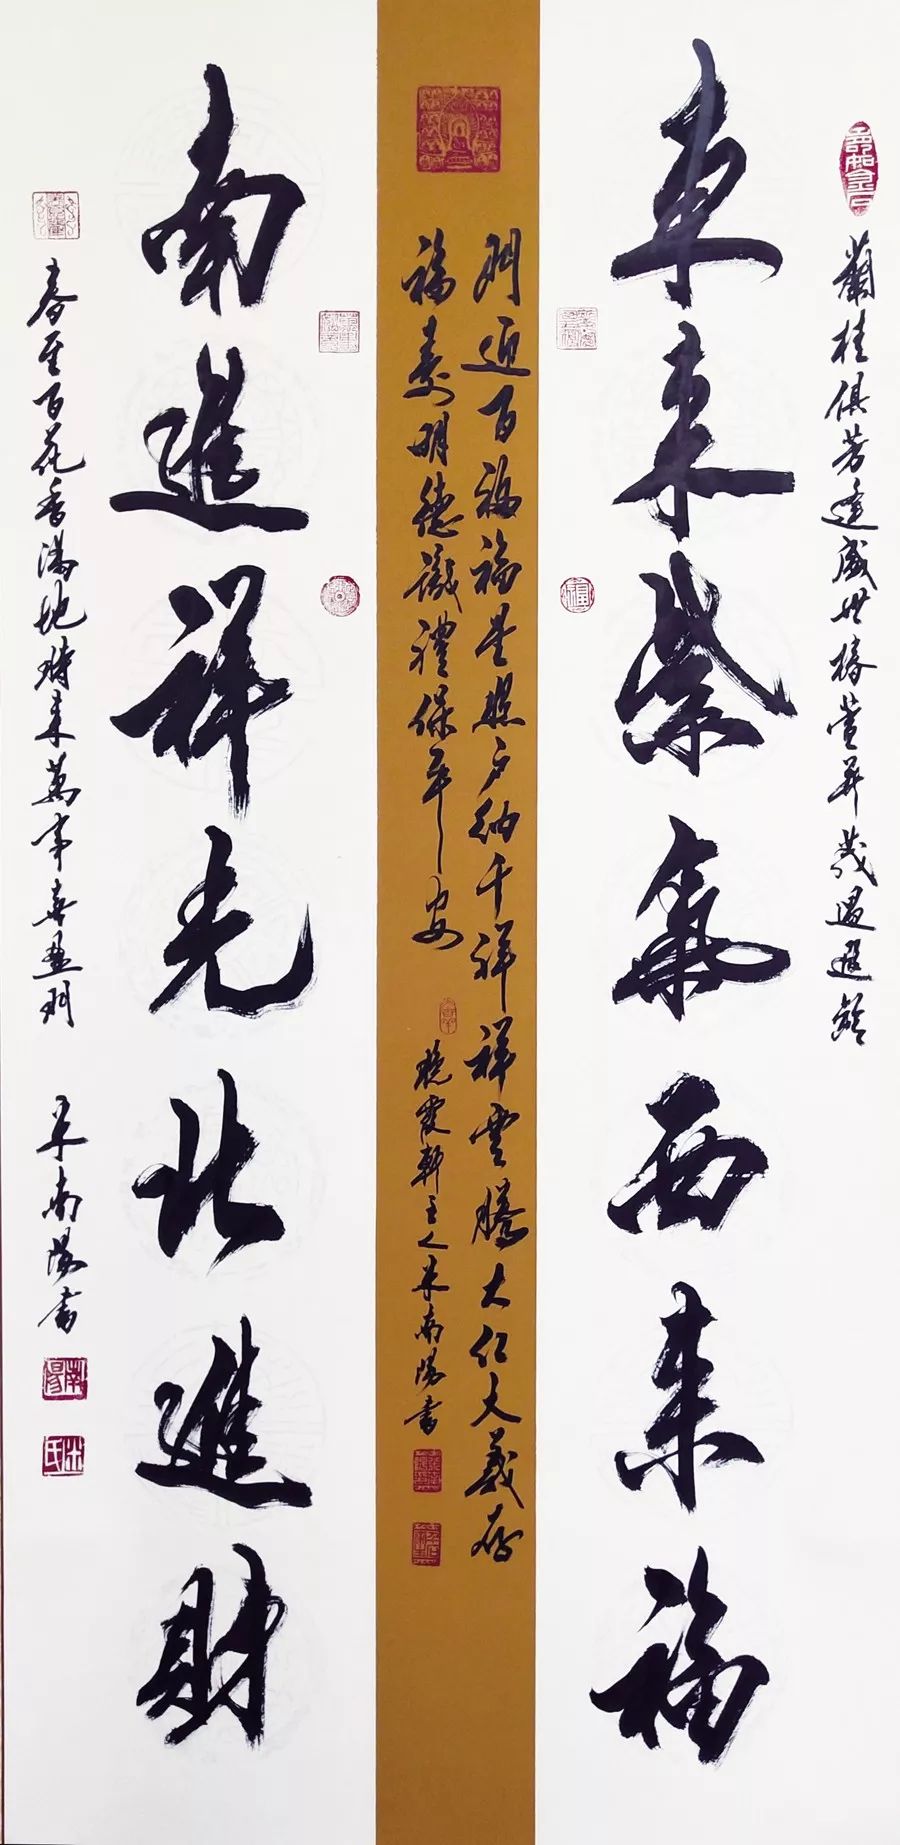 蘭桂俱芳逢盛世椿萱并茂遇遐齡
東来紫氣西来福
門迎百福福星照户纳千祥祥雲騰大仁大義存
福寿明德識禮保平安
晚霞軒主人米南陽書
南進祥光北進財
春至百花香满地時来萬事喜盈門
米南陽書
南陽
米氏